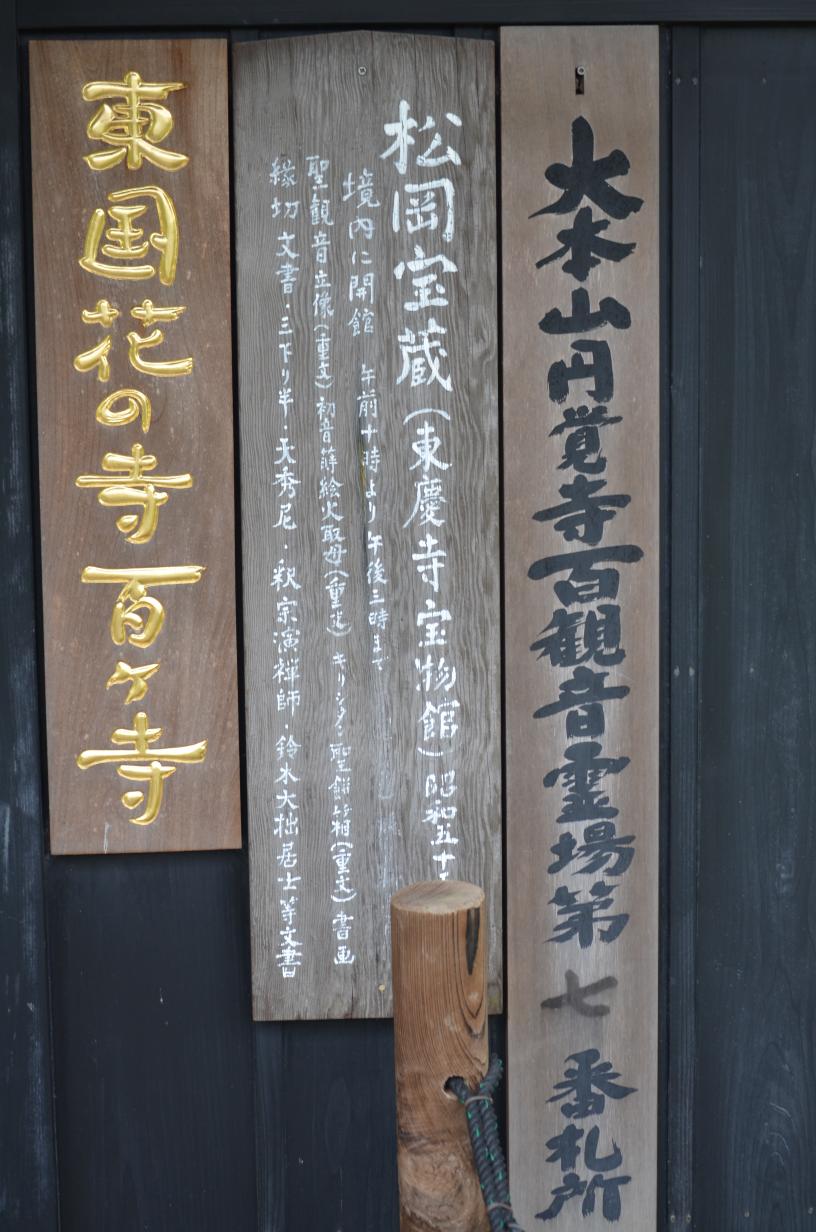 大本山円覚寺百観音霊場第七番札所
松岡宝蔵（東慶寺宝物館）昭和五十
境内に開館 午前十時より午後三時まで
聖観音立像（重文）初音蒔絵火取母（重文）キリシタン聖餅箱（重文）書画
縁切文書・三下り半・天秀尼・釈宗演禅師・鈴木大拙居士等文書
東国花の寺百ヶ寺